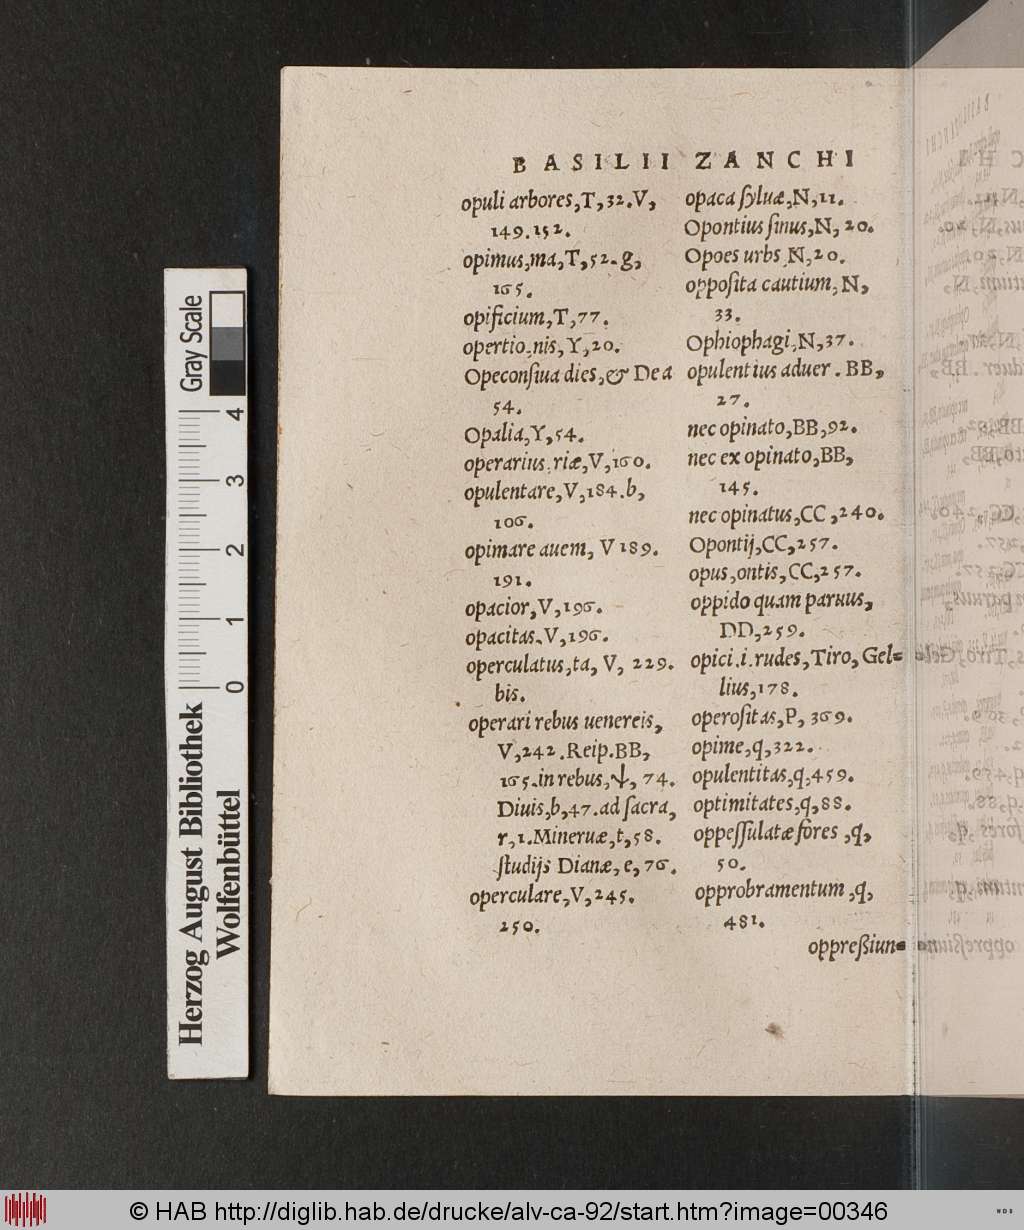 BASILII ZANCHI
opuli arbores,T,32.V,
149.152.
opimus,ma,T,52.g,
165.
opificium,T,77.
opertio,nis,Y,20.
Opeconſiua dies,& Dea
54.
Opalia,Y,54.
operarius,riæ,V,160.
opulentare,V,184.b,
106.
opimare auem, V 189.
191.
opacior,V,196.
opacitas,V,196.
operculatus,ta, V, 229.
bis.
operari rebus uenereis,
V,242.Reip.BB,
165.in rebus,ψ, 74.
Diuis,b,47.ad ſacra,
r,1.Mineruæ,t,58.
ſtudijs Dianæ,e,76.
operculare,V,245.
250.
opaca ſyluæ,N,11.
Opontius ſinus,N, 20.
Opoes urbs,N,20.
oppoſita cautium,N,
33.
Ophiophagi,N,37.
opulentius aduer.BB,
27.
nec opinato,BB,92.
nec ex opinato,BB,
145.
nec opinatus,CC,240.
Opontij,CC,257.
opus,ontis,CC,257.
oppido quam paruus,
DD,259.
opici.i.rudes,Tiro, Gel=
lius,178.
operoſitas,P, 369.
opime,q,322.
opulentitas,q,459.
optimitates,q,88.
oppeſſulatæ fores ,q,
50.
opprobramentum ,q,
481.
oppreßiun=
Gray Scale
4 3 2 1 0
Herzog August Bibliothek
Wolfenbüttel
© HAB http://diglib.hab.de/drucke/alv-ca-92/start.htm?image=00346